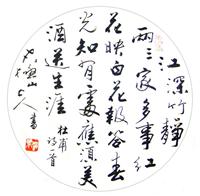 江深竹靜
兩三家多事紅
花映白花報答春
光知有處應須美
酒送生涯
杜甫
詩一首
山人書